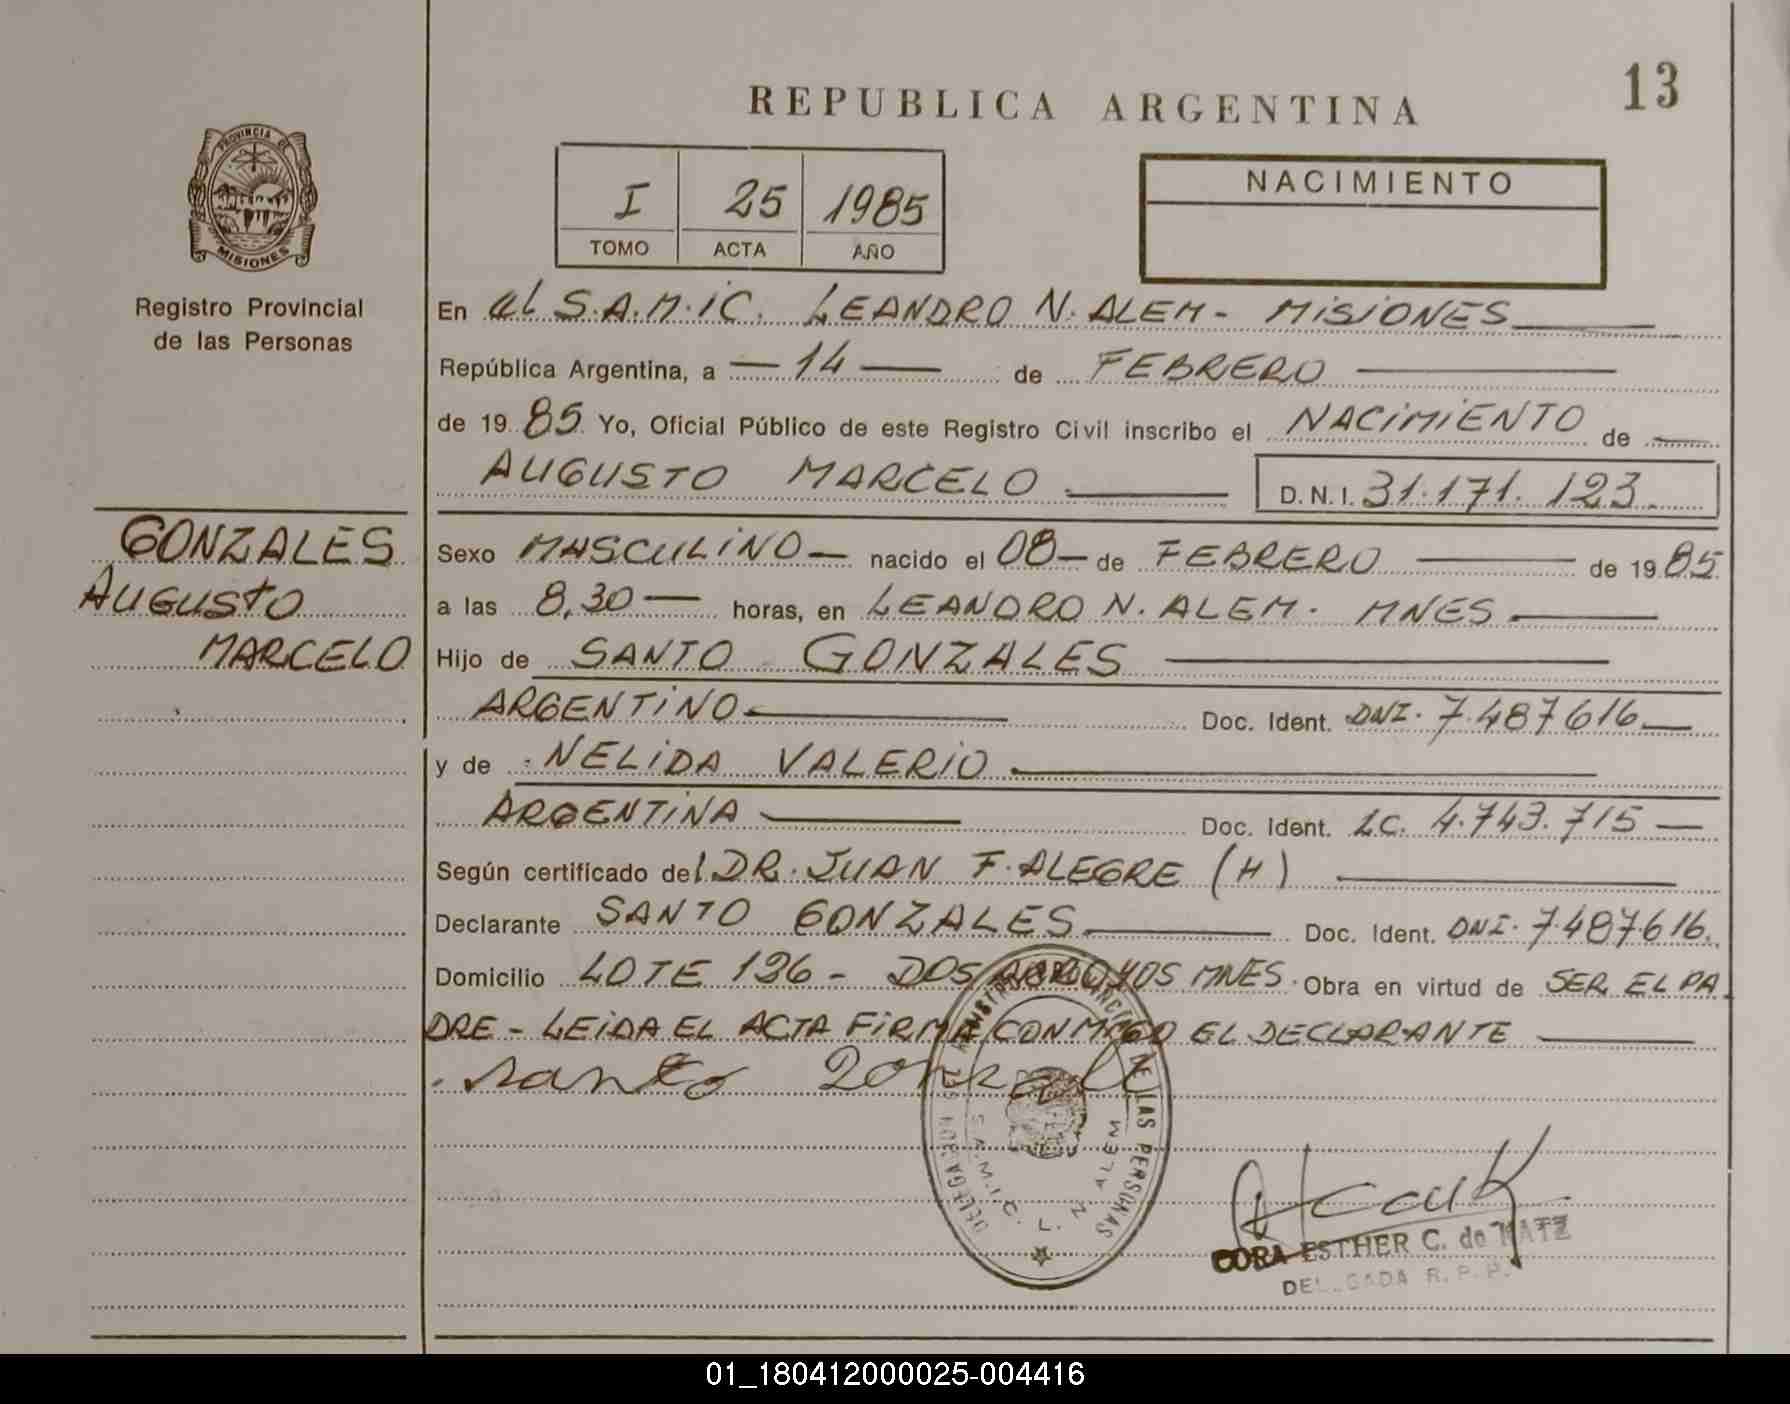 13
REPUBLICA ARGENTINA
PROVINCIA DE
MISIONES
Registro Provincial
de las Personas
I 25 1985
TOMO ACTA AÑO
NACIMIENTO
En el S.A.M.iC. LEANDRO N. ALEM - MiSiONES
República Argentina, a - 14 - de FEBRERO
de 19 85 Yo, Oficial Público de este Registro Civil inscribo el NACiMiENTO de
AUGUSTO MARCELO D.N.I. 31.171.123
GONZALES
AUGUSTO
MARCELO
Sexo MASCULiNO - nacido el 08 - de FEBRERO de 19 85
a las 8,30 - horas, en LEANDRO N. ALEM. MNES
Hijo de SANTO GONZALES
ARGENTiNO Doc. Ident. DNI. 7.487616
y de NELiDA VALERiO
ARGENTiNA Doc. Ident. LC. 4.743.715
Según certificado del DR. JUAN F. ALEGRE (H)
Declarante SANTO GONZALES Doc. Ident. DNI. 7487616.
Domicilio LOTE 196 - DOS ARROYOS MNES. Obra en virtud de SER EL PA
DRE - LEiDA EL ACTA FiRMA CONMIGO EL DECLARANTE
santo
DE LAS PERSONAS
S.A.M.I.C. L. N. ALEM
ESTHER C. de MATZ
R.P.P.
01_180412000025-004416